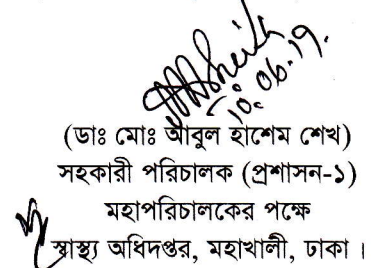 10.06.19.
(ডাঃ মোঃ আবুল হাশেম শেখ)
সহকারী পরিচালক (প্রশাসন-১)
মহাপরিচালকের পক্ষে
স্বাস্থ্য অধিদপ্তর, মহাখালী, ঢাকা ।